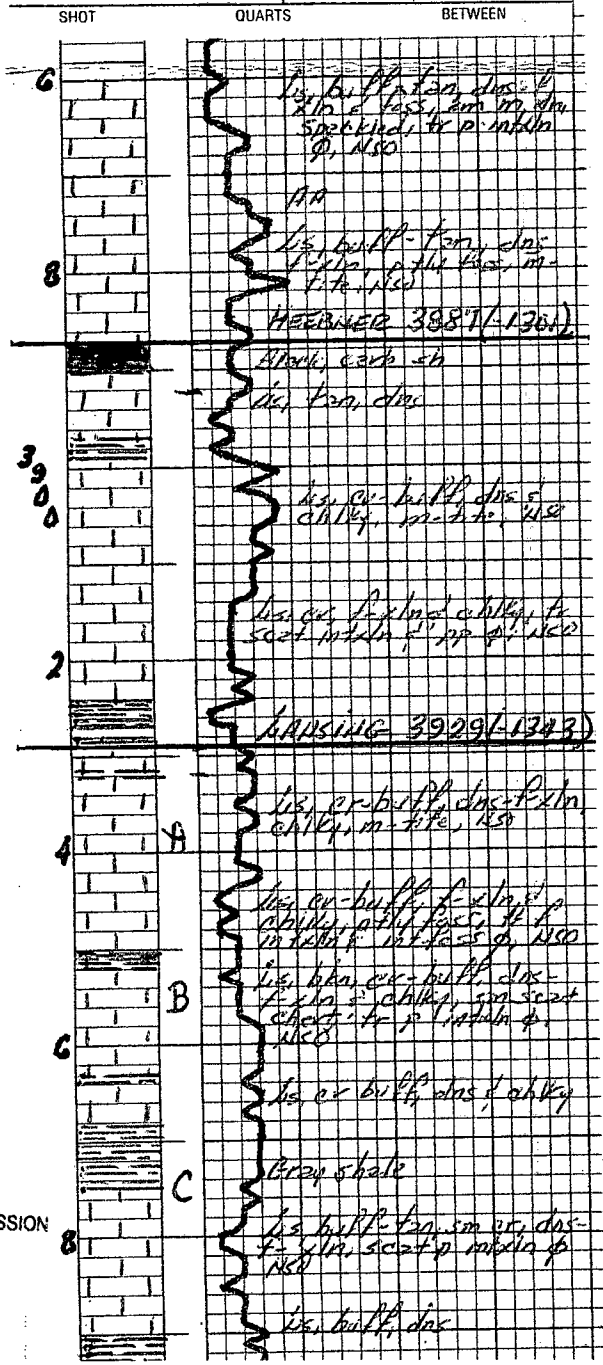 SHOT QUARTS BETWEEN
6
Ls, buff-tan, dns-f
xln & foss, sm m. dns,
speckled, tr p intxln
φ, NSO
AA
Ls, buff-tan, dns
f-xln, ptly foss, m-
tite, NSO
8
HEEBNER 3887(-1301)
Black, carb sh
Ls, tan, dns
3900
Ls, cr-buff, dns &
chlky, m-tite, NSO
Ls, cr, f-xln & chlky, tr
scat intxln & pp φ, NSO
2
LANSING 3929(-1343)
Ls, cr-buff, dns-f-xln,
chlky, m-tite, NSO
A
4
Ls, cr-buff, f-xln, &
chlky, ptly foss, tr f
intxln & intfoss φ, NSO
Ls, bkn, cr-buff, dns-
f-xln & chlky, sm scat
chert, tr p intxln φ,
NSO
B
6
Ls, cr buff, dns & chlky
Gray shale
C
SSION
8
Ls, buff-tan, sm cr, dns-
f-xln, scat p intxln φ
NSO
Ls, buff, dns